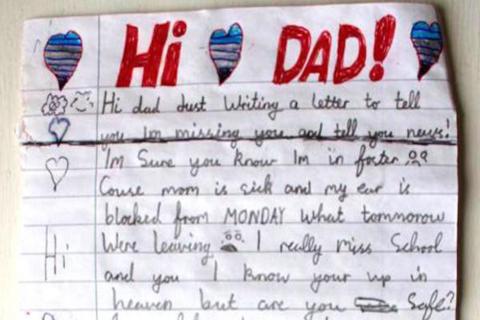 Hi DAD!
Hi dad Just Writing a letter to tell
you Im missing you and tell you news!
Im Sure you know Im in foster
Couse mom is sick and my ear is
blocked from MONDAY What tommorow
Were leaving I really miss School
Hi
and you I know your up in
heaven but are you Safe?